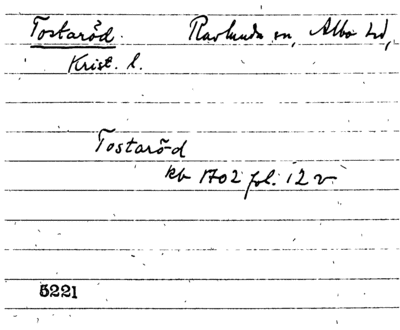 Tostaröd. Ravlunda sn, Albo hd,
Krist. l.
Tostaröd
kb 1702 fol. 12 v.
5221